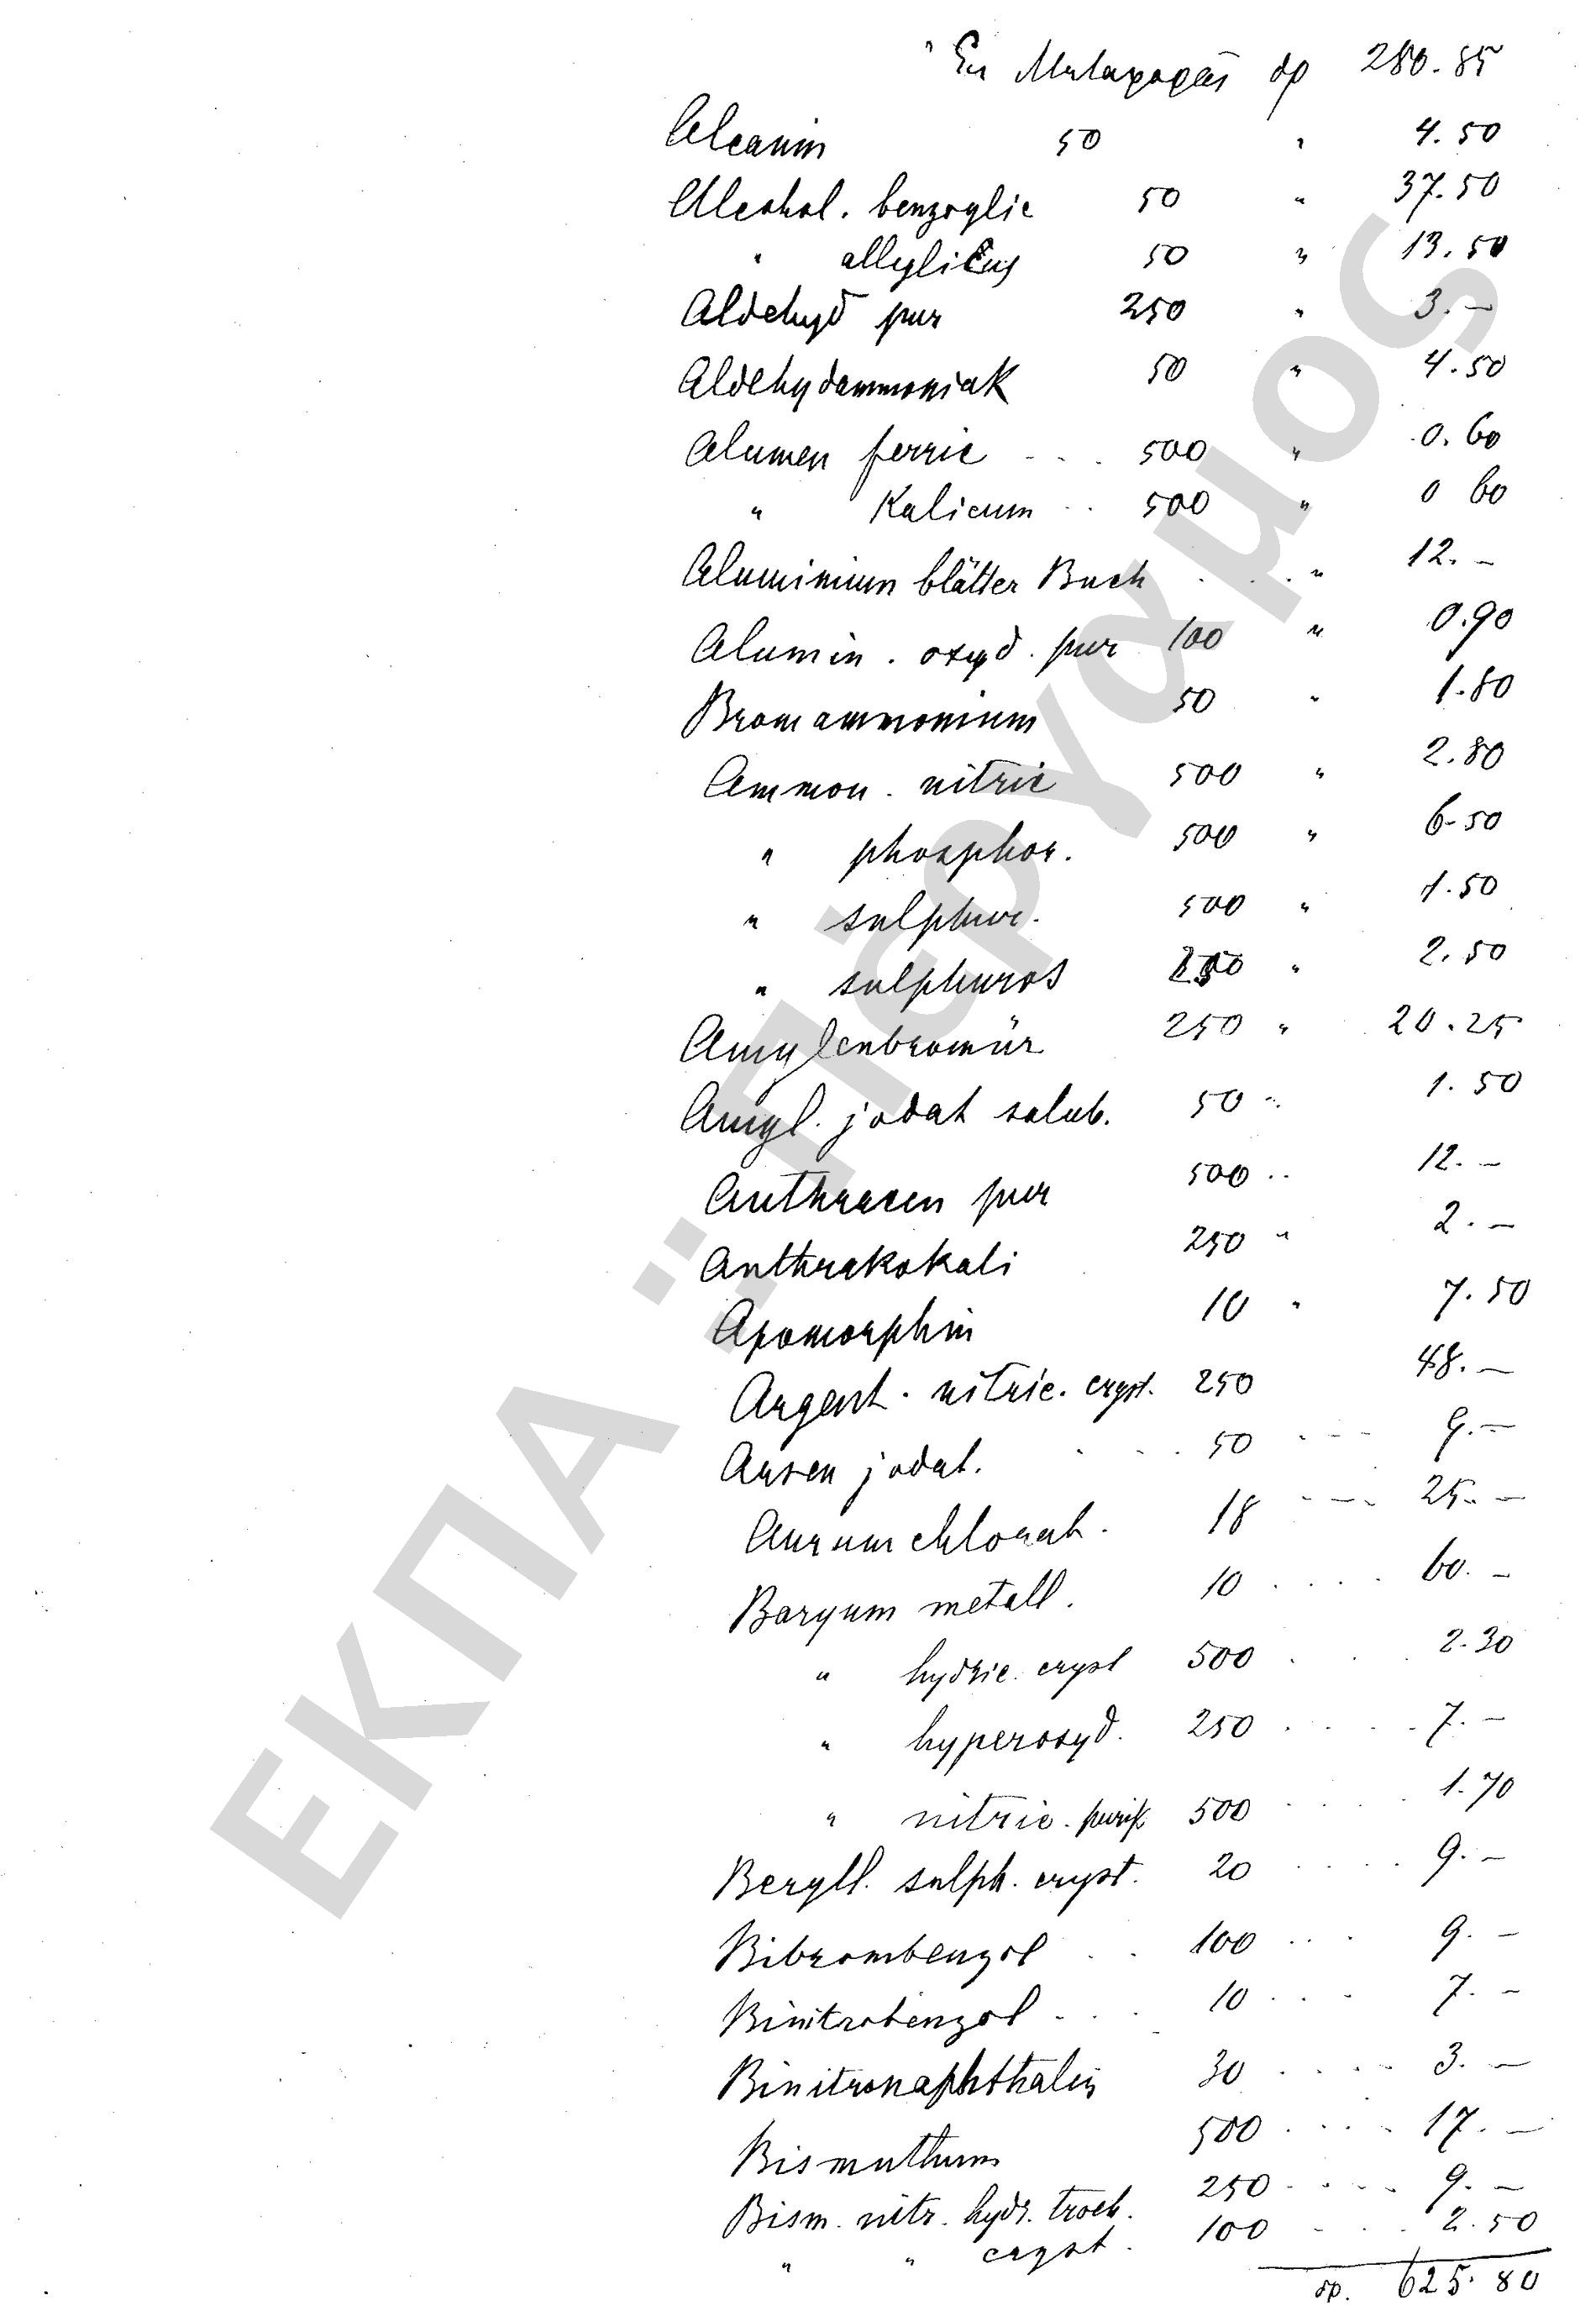 Ἐκ Μεταφορᾶς δρ 280.85
Alcanin 50 " 4.50
Alcohol. benzoylic 50 " 37.50
" allylicus 50 " 13.50
Aldehyd pur 250 " 3.—
Aldehydammoniak 50 " 4.50
Alumen ferric - . . 500 " 0.60
" Kalicum . . 500 " 0 60
Aluminium blätter Buch . . " 12.—
Alumin. oxyd. pur 100 " 0.90
Bromammonium 50 " 1.80
Ammon. nitric 500 " 2.80
" phosphor. 500 " 6-50
" sulphur. 500 " 1.50
" sulphuros 250 " 2.50
Amylenbromür 250 " 20.25
Amyl. jodat solub. 50 " 1.50
Anthracen pur 500 " 12.—
Anthrakokali 250 " 2.—
Apomorphin 10 " 7.50
Argent. nitric. cryst. 250 48.—
Arsen jodat. . . . 50 - - - 9.—
Aurum chlorat. 18 - - - 25.—
Baryum metall. 10 . . . . 60.—
" hydric. cryst 500 . . . 2.30
" hyperoxyd. 250 . . . . 7.—
" nitric. purif 500 . . . . 1.70
Beryll. sulph. cryst. 20 . . . . 9.—
Bibrombenzol . . 100 . . . 9.—
Binitrobenzol . . . 10 . . . 7.—
Binitronaphthalin 30 . . . . 3.—
Bismuthum 500 . . . . 17.—
Bism. nitr. hydr. troch. 250 . . . . 9.—
" " cryst. 100 . . . 2.50
δρ. 625.80
ΕΚΠΑ Ϊστορικό Αρχείο